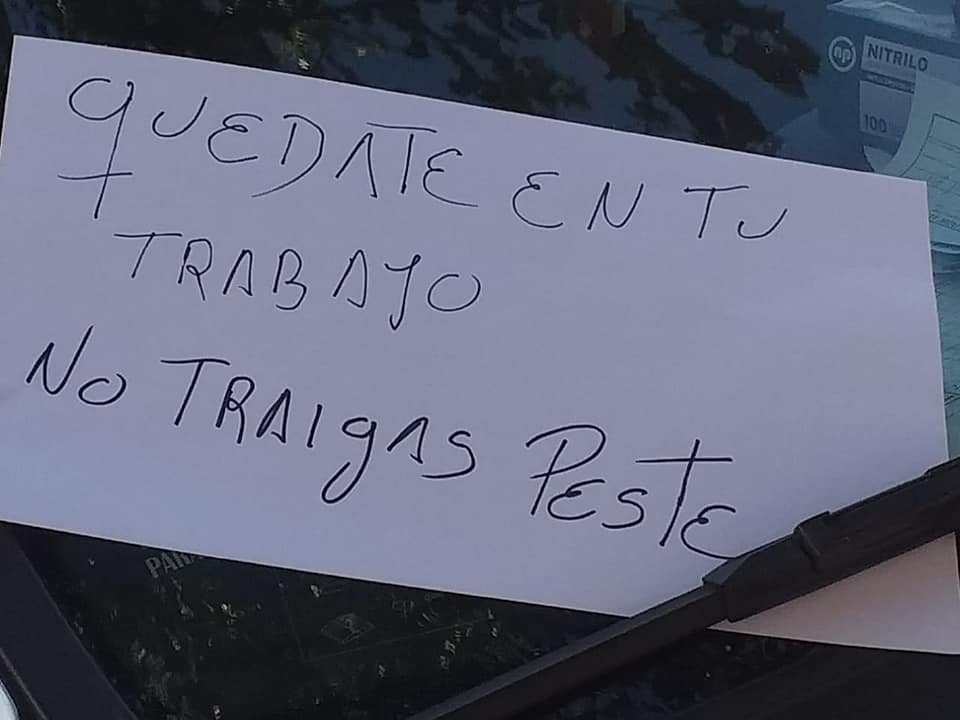 QUEDATE EN TU
TRABAJO
NO TRAIGAS PESTE
np NITRILO
100